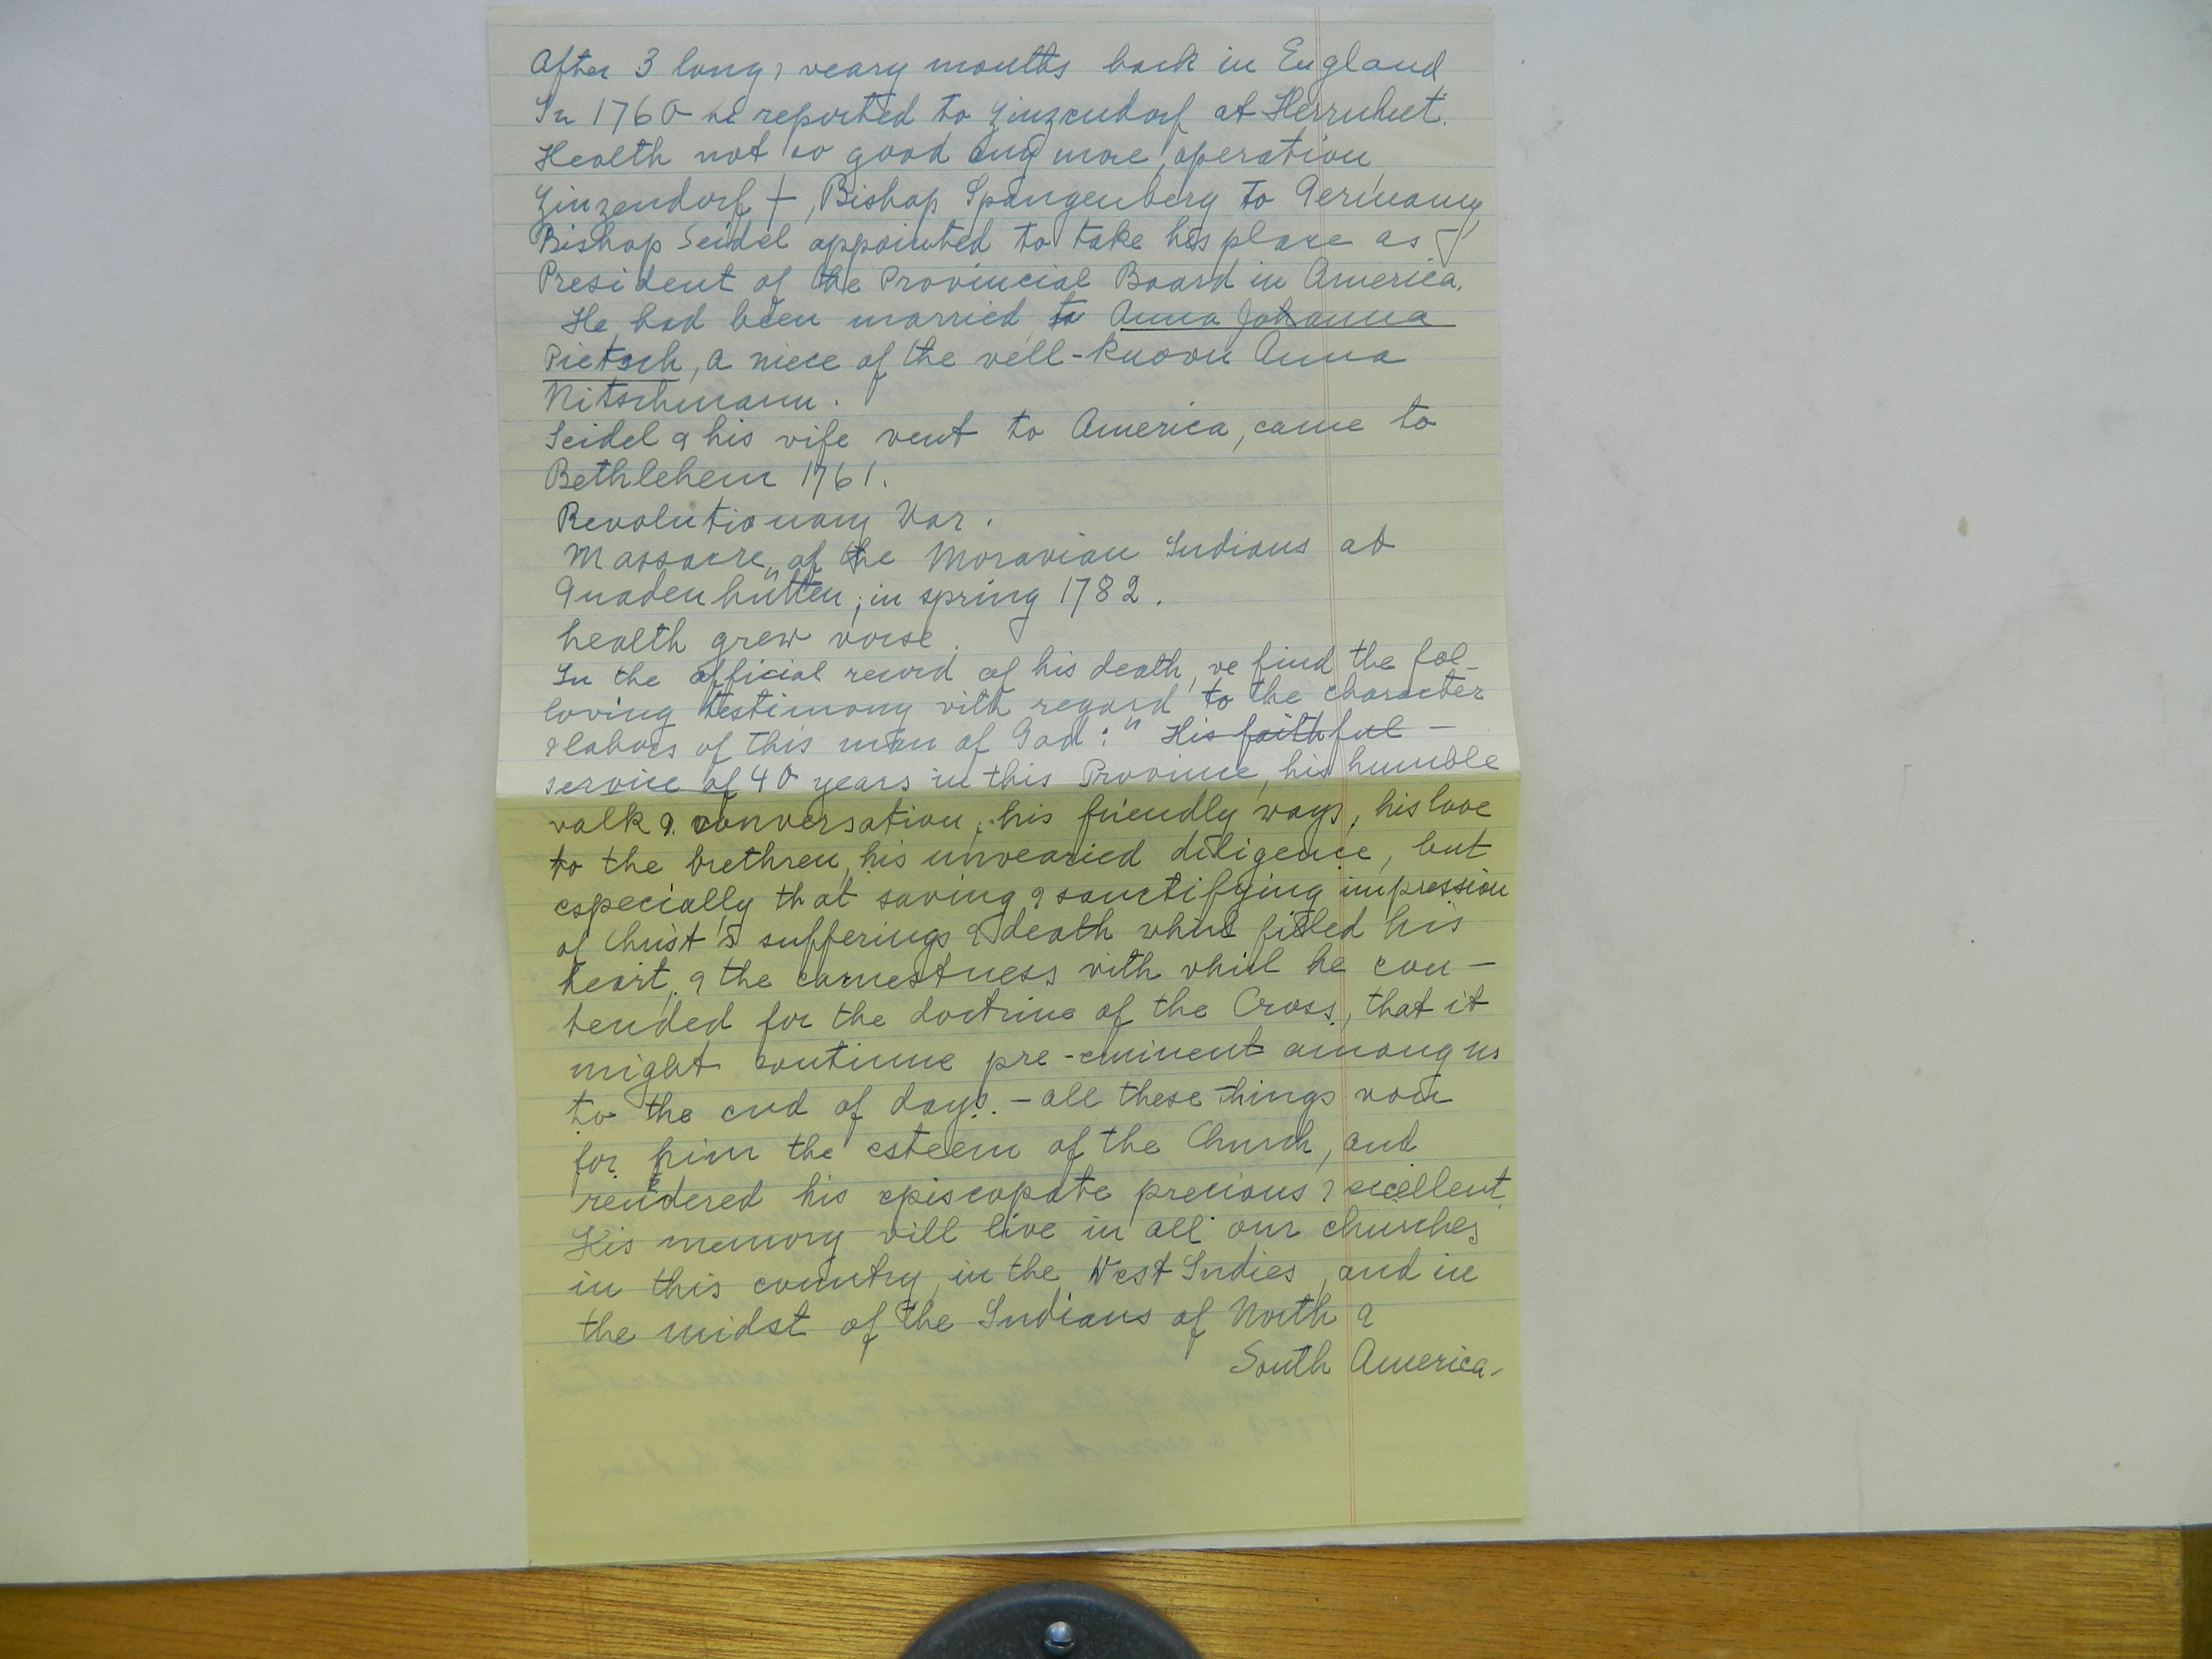 After 3 long & weary months back in England
In 1760 he reported to Zinzendorf at Herrnhut.
Health not so good any more, operation
Zinzendorf +, Bishop Spangenberg to Germany,
Bishop Seidel appointed to take his place as
President of the Provincial Board in America.
He had been married to Anna Johanna
Pietsch, a niece of the well-known Anna
Nitschmann.
Seidel & his wife went to America, came to
Bethlehem 1761.
Revolutionary War.
Massacre of the Moravian Indians at
Gnadenhütten, in spring 1782.
health grew worse.
In the official record of his death, we find the fol-
lowing testimony with regard to the character
& labors of this man of God: "His faithful -
service of 40 years in this Province, his humble
walk & conversation, his friendly ways, his love
to the brethren, his unwearied diligence, but
especially that saving & sanctifying impression
of Christ's sufferings & death which filled his
heart, & the earnestness with which he con-
tended for the doctrine of the Cross, that it
might continue pre-eminent among us
to the end of days. - all these things won
for him the esteem of the Church, and
rendered his episcopate precious & excellent.
His memory will live in all our churches
in this country, in the West Indies, and in
the midst of the Indians of North &
South America.